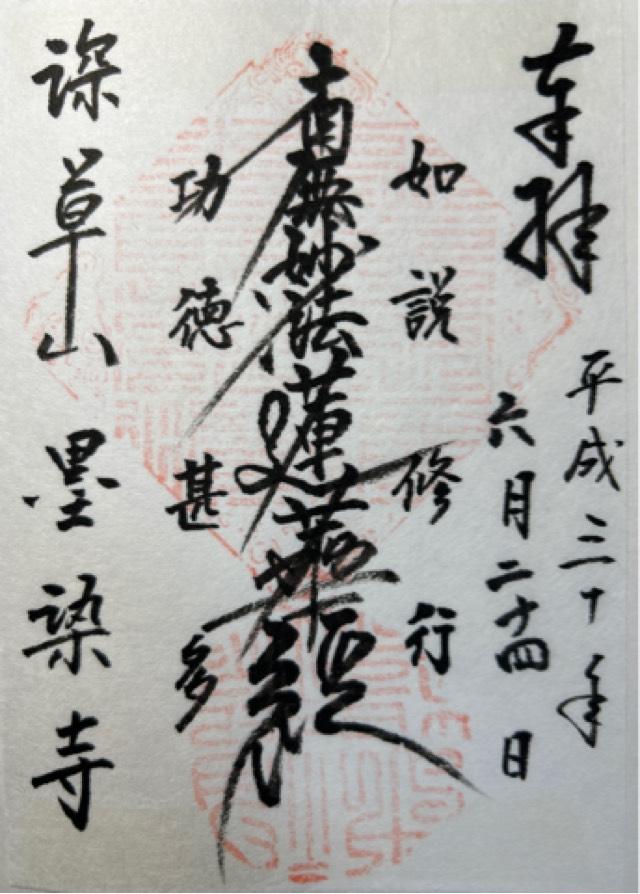 奉拝
平成三十年
六月二十四日
如説修行
南無妙法蓮華経
功徳甚多
深草山墨染寺